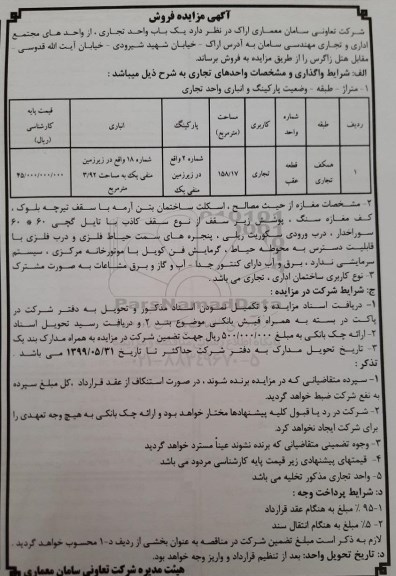 آگهی مزایده فروش
شرکت تعاونی سامان معماری اراک در نظر دارد یک باب واحد تجاری ، از واحد های مجتمع
اداری و تجاری مهندسی سامان به آدرس اراک - خیابان شهید شیرودی - خیابان آیت الله قدوسی -
مقابل هتل زاگرس را از طریق مزایده به فروش برساند.
الف: شرایط واگذاری و مشخصات واحدهای تجاری به شرح ذیل میباشد :
۱- متراژ - طبقه - وضعیت پارکینگ و انباری واحد تجاری
ردیف طبقه شماره واحد کاربری مساحت (مترمربع) پارکینگ انباری قیمت پایه کارشناسی (ریال)
۱ همکف تجاری قطعه عقب تجاری ۱۵۸/۱۷ شماره ۴ واقع در زیرزمین منفی یک شماره ۱۸ واقع در زیرزمین منفی یک به مساحت ۳/۹۲ مترمربع ۴۵/۰۰۰/۰۰۰/۰۰۰
۲- مشخصات مغازه از حیث مصالح ، اسکلت ساختمان بتن آرمه با سقف تیرچه بلوک ،
کف مغازه سنگ ، پوشش زیر سقف از نوع سقف کاذب با تایل گچی ۶۰ * ۶۰
سوراخدار ، درب ورودی سکوریت ریلی ، پنجره های سمت حیاط فلزی و درب فلزی با
قابلیت دسترس به محوطه حیاط ، گرمایش فن کویل با موتورخانه مرکزی ، سیستم
سرمایشی ندارد ، برق و آب دارای کنتور جدا - آب و گاز و برق مشاعات به صورت مشترک
۳- نوع کاربری ساختمان اداری ، تجاری می باشد .
ج: شرایط شرکت در مزایده :
۱- دریافت اسناد مزایده و تکمیل نمودن اسناد مذکور و تحویل به دفتر شرکت در
پاکت در بسته به همراه فیش بانکی موضوع بند ۲ و دریافت رسید تحویل اسناد
۲- ارائه چک بانکی به مبلغ ۵۰۰/۰۰۰/۰۰۰ ریال جهت تضمین شرکت در مزایده به همراه مدارک بند یک
۳- تاریخ تحویل مدارک به دفتر شرکت حداکثر تا تاریخ ۱۳۹۹/۰۵/۳۱ می باشد .
تذکر :
۱- سپرده متقاضیانی که در مزایده برنده شوند ، در صورت استنکاف از عقد قرارداد ، کل مبلغ سپرده
به نفع شرکت ضبط خواهد گردید.
۲- شرکت در رد یا قبول کلیه پیشنهادها مختار خواهد بود و ارائه چک بانکی به هیچ وجه تعهدی را
برای شرکت ایجاد نخواهد کرد.
۳- وجوه تضمینی متقاضیانی که برنده نشوند عیناً مسترد خواهد گردید
۴- قیمتهای پیشنهادی زیر قیمت پایه کارشناسی مردود می باشد
۵- واحد تجاری مذکور تخلیه می باشد
د: شرایط پرداخت وجه :
۱- ۹۵ ٪ مبلغ به هنگام عقد قرارداد
۲- ۵٪ مبلغ به هنگام انتقال سند
لازم به ذکر است مبلغ تضمین شرکت در مناقصه به عنوان بخشی از ردیف د-۱ محسوب خواهد گردید .
د: تاریخ تحویل واحد: بعد از تنظیم قرارداد و واریز وجه خواهد بود.
هیئت مدیره شرکت تعاونی سامان معماری
ParsNamadData
۰۲۱-۸۸۳۴۹۶۷۰-۵